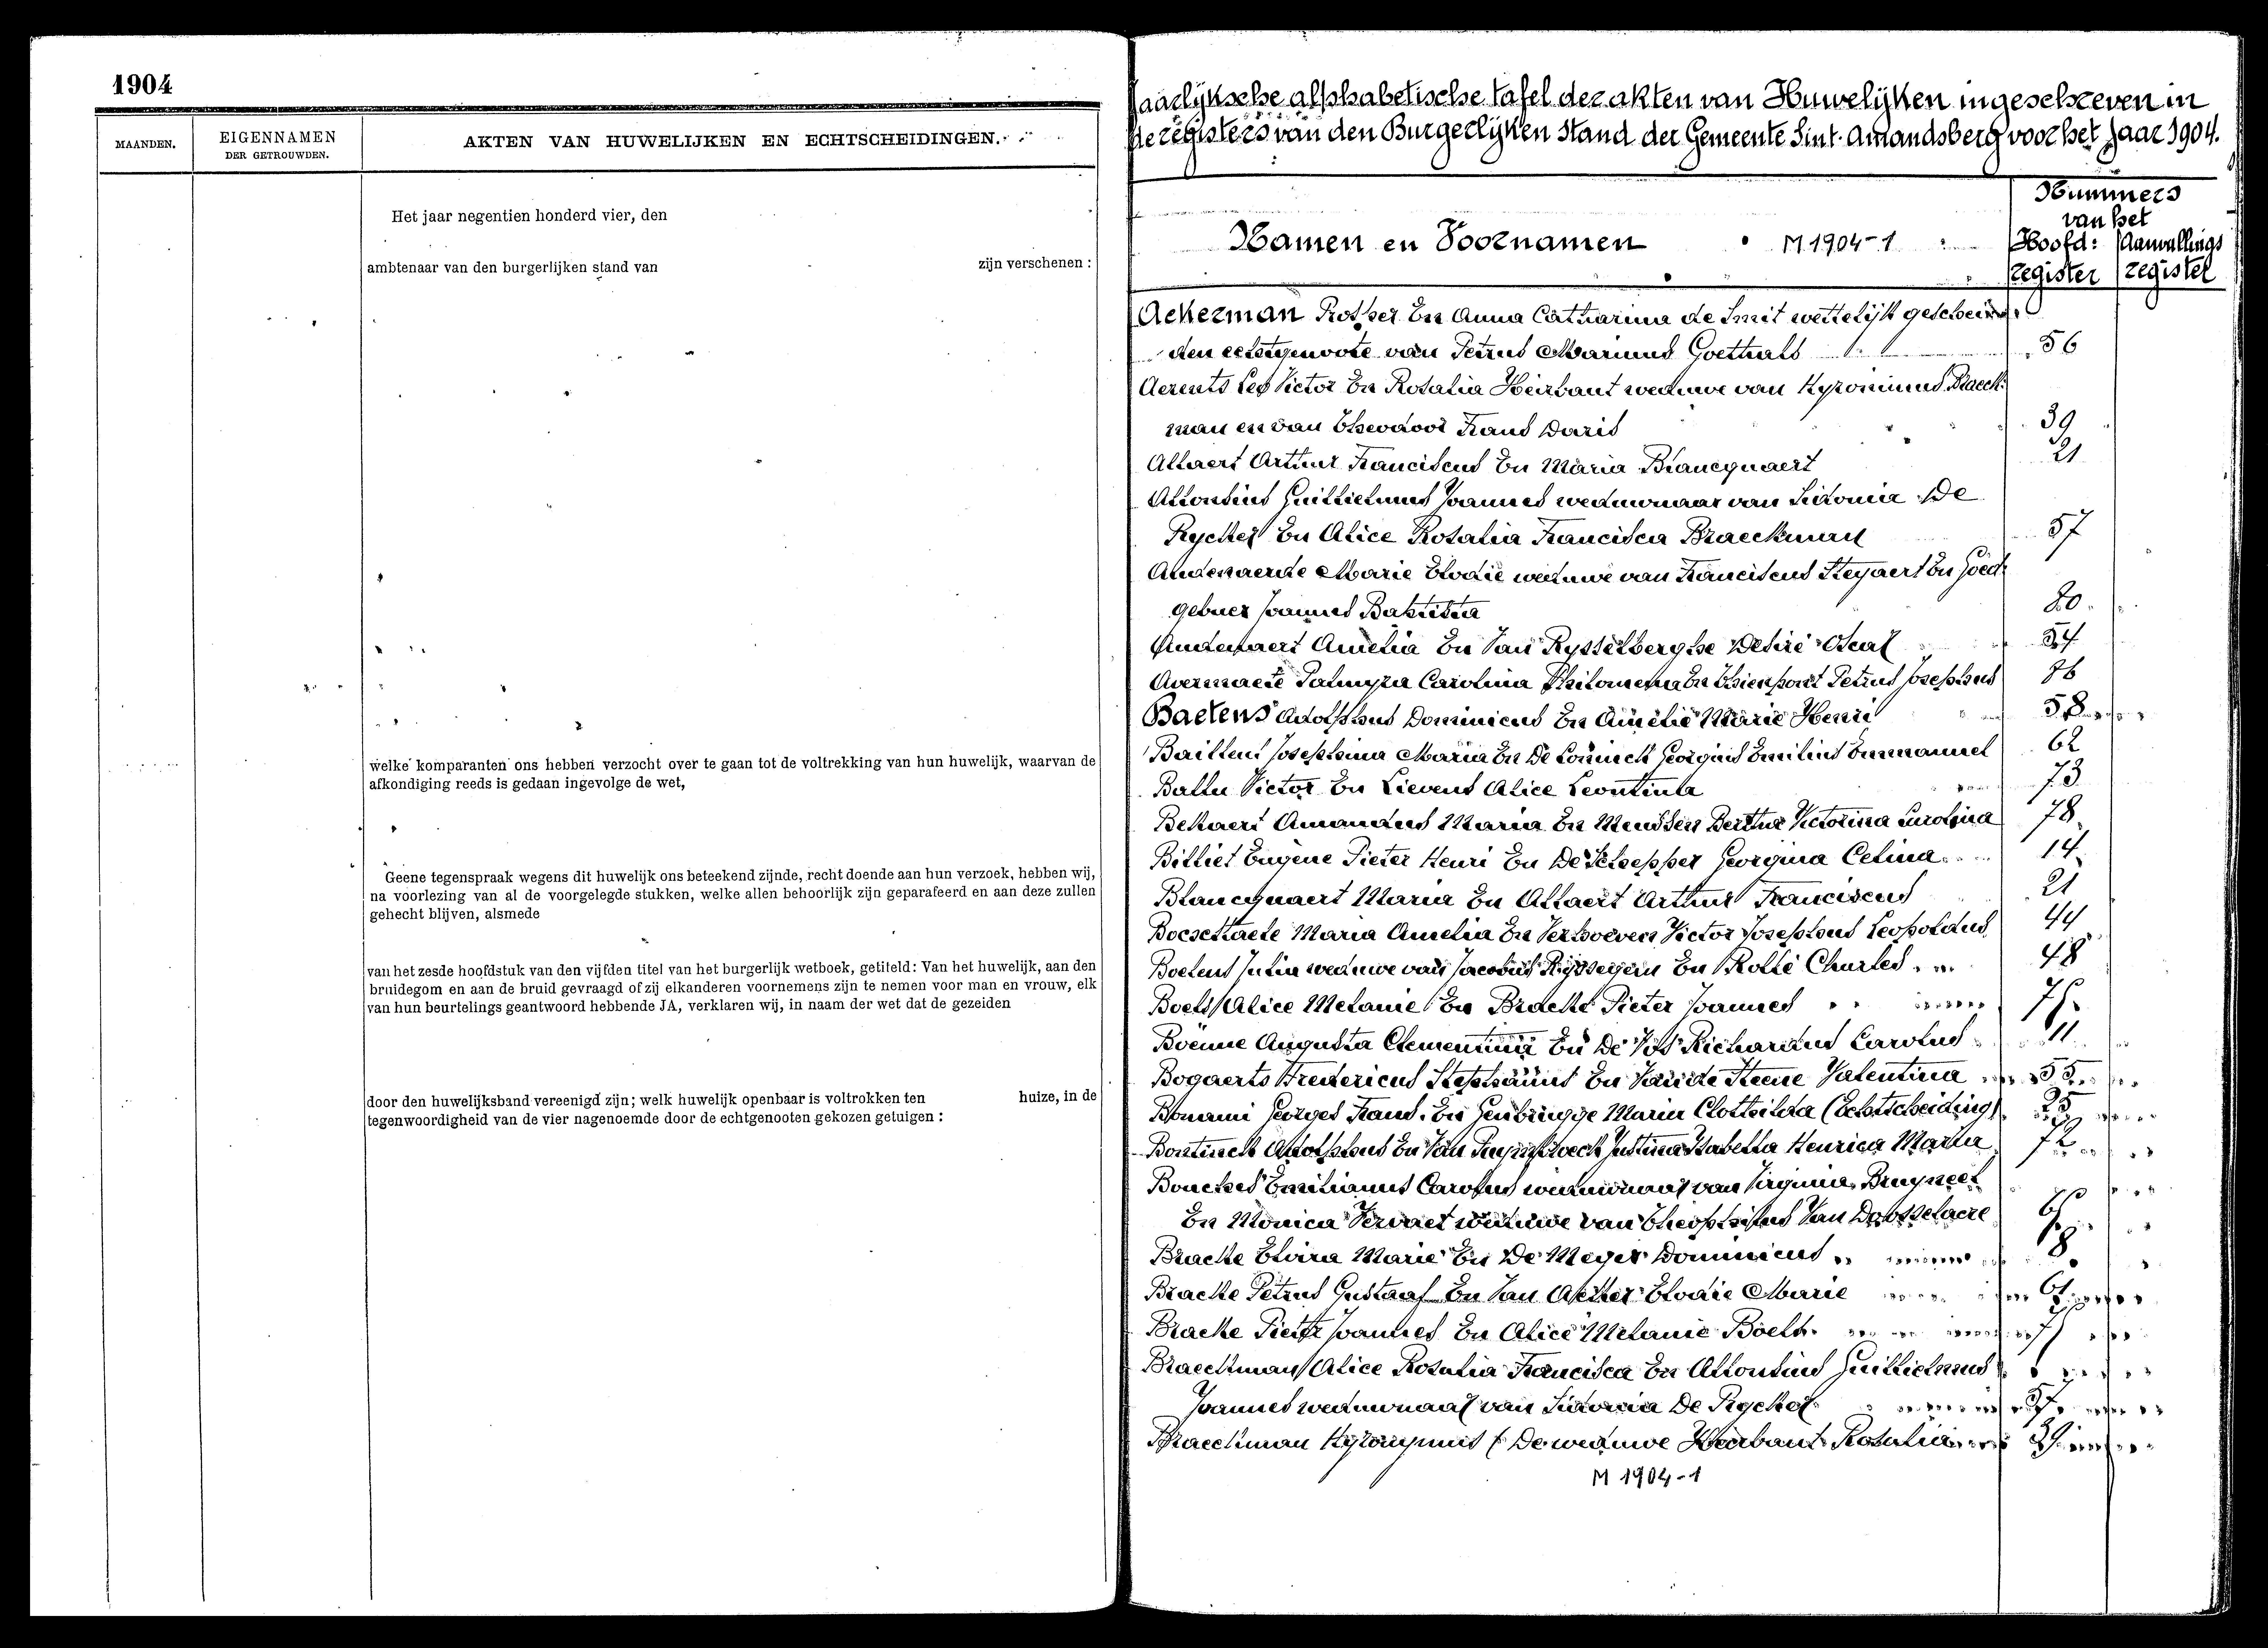 1904
MAANDEN.
EIGENNAMEN
DER GETROUWDEN.
AKTEN VAN HUWELIJKEN EN ECHTSCHEIDINGEN.
Het jaar negentien honderd vier, den
ambtenaar van den burgerlijken stand van zijn verschenen :
welke komparanten ons hebben verzocht over te gaan tot de voltrekking van hun huwelijk, waarvan de
afkondiging reeds is gedaan ingevolge de wet,
Geene tegenspraak wegens dit huwelijk ons beteekend zijnde, recht doende aan hun verzoek, hebben wij,
na voorlezing van al de voorgelegde stukken, welke allen behoorlijk zijn geparafeerd en aan deze zullen
gehecht blijven, alsmede
van het zesde hoofdstuk van den vijfden titel van het burgerlijk wetboek, getiteld: Van het huwelijk, aan den
bruidegom en aan de bruid gevraagd of zij elkanderen voornemens zijn te nemen voor man en vrouw, elk
van hun beurtelings geantwoord hebbende JA, verklaren wij, in naam der wet dat de gezeiden
door den huwelijksband vereenigd zijn; welk huwelijk openbaar is voltrokken ten huize, in de
tegenwoordigheid van de vier nagenoemde door de echtgenooten gekozen getuigen :
Jaarlijksche alphabetische tafel der akten van Huwelijken ingeschreven in
de registers van den Burgerlijken Stand der Gemeente Sint-Amandsberg voor het jaar 1904.
Namen en Voornamen M 1904-1
Nummers
van het
Hoofd: Aanvullings
register register
Ackerman En Anna Catharina de Smit wettelijk geschei
den echtgenoote van Petrus Marinus Goethals 56
Aerents Leo Victor En Rosalia Heirbaut weduwe van Hyronimus Braeck
man en van Theodoor Frans Daris 39
Allaert Arthur Franciscus En Maria Blancquaert 21
Allonsius Guillielmus Joannes weduwnaar van Sidonia De
Rycker En Alice Rosalia Francisca Braeckman 57
Andenaerde Marie Elodie weduwe van Franciscus Steyaert En Goed
gebuer Joannes Baptista 20
Audenaert Amelia En Van Rysselberghe Desiré Oscar 34
Avermaete Palmyra Carolina Philomena En Thienpont Petrus Josephus 76
Baetens Adolphus Dominicus En Amelie Marie Henri 58
Bailleul Josephina Maria En De Coninck Georgius Emilius Emmanuel 62
Ballu Victor En Lievens Alice Leontina 73
Bekaert Amandus Maria En Berthe Victorina Carolina 78
Billiet Eugene Pieter Henri En De Schepper Georgina Celina 14
Blancquaert Maria En Allaert Arthur Franciscus 21
Maria Amelia En Verhoeven Victor Josephus Leopoldus 44
Boelens Julia weduwe van Jacobus En Rollé Charles 48
Boels Alice Melanie En Bracke Pieter Joannes 71
Boënne Augusta Clementina En De Vos Richardus Carolus 11
Bogaerts Fredericus Stephanus En Van de Steene Valentina 55
Bonami Georges Frans En Genbrugge Maria Clothilda (Echtscheiding) 25
Bontinck Adolphus En Van Justina Isabella Henrica Maria 72
Emilianus Carolus weduwnaar van Virginia Bruyneel
En Monica Vervaet weduwe van Theophilus Van Dorsselaere
Bracke Elvira Marie En De Meyer Dominicus 8
Bracke Petrus Gustaaf En Van Acker Elodie Marie 61
Bracke Pieter Joannes En Alice Melanie Boels 71
Braeckman Alice Rosalia Francisca En Allonsius Guillielmus
Joannes weduwnaar van Sidonia De Rycker 57
Braeckman Hyronymus (De weduwe Heirbaut Rosalia 39
M 1904-1